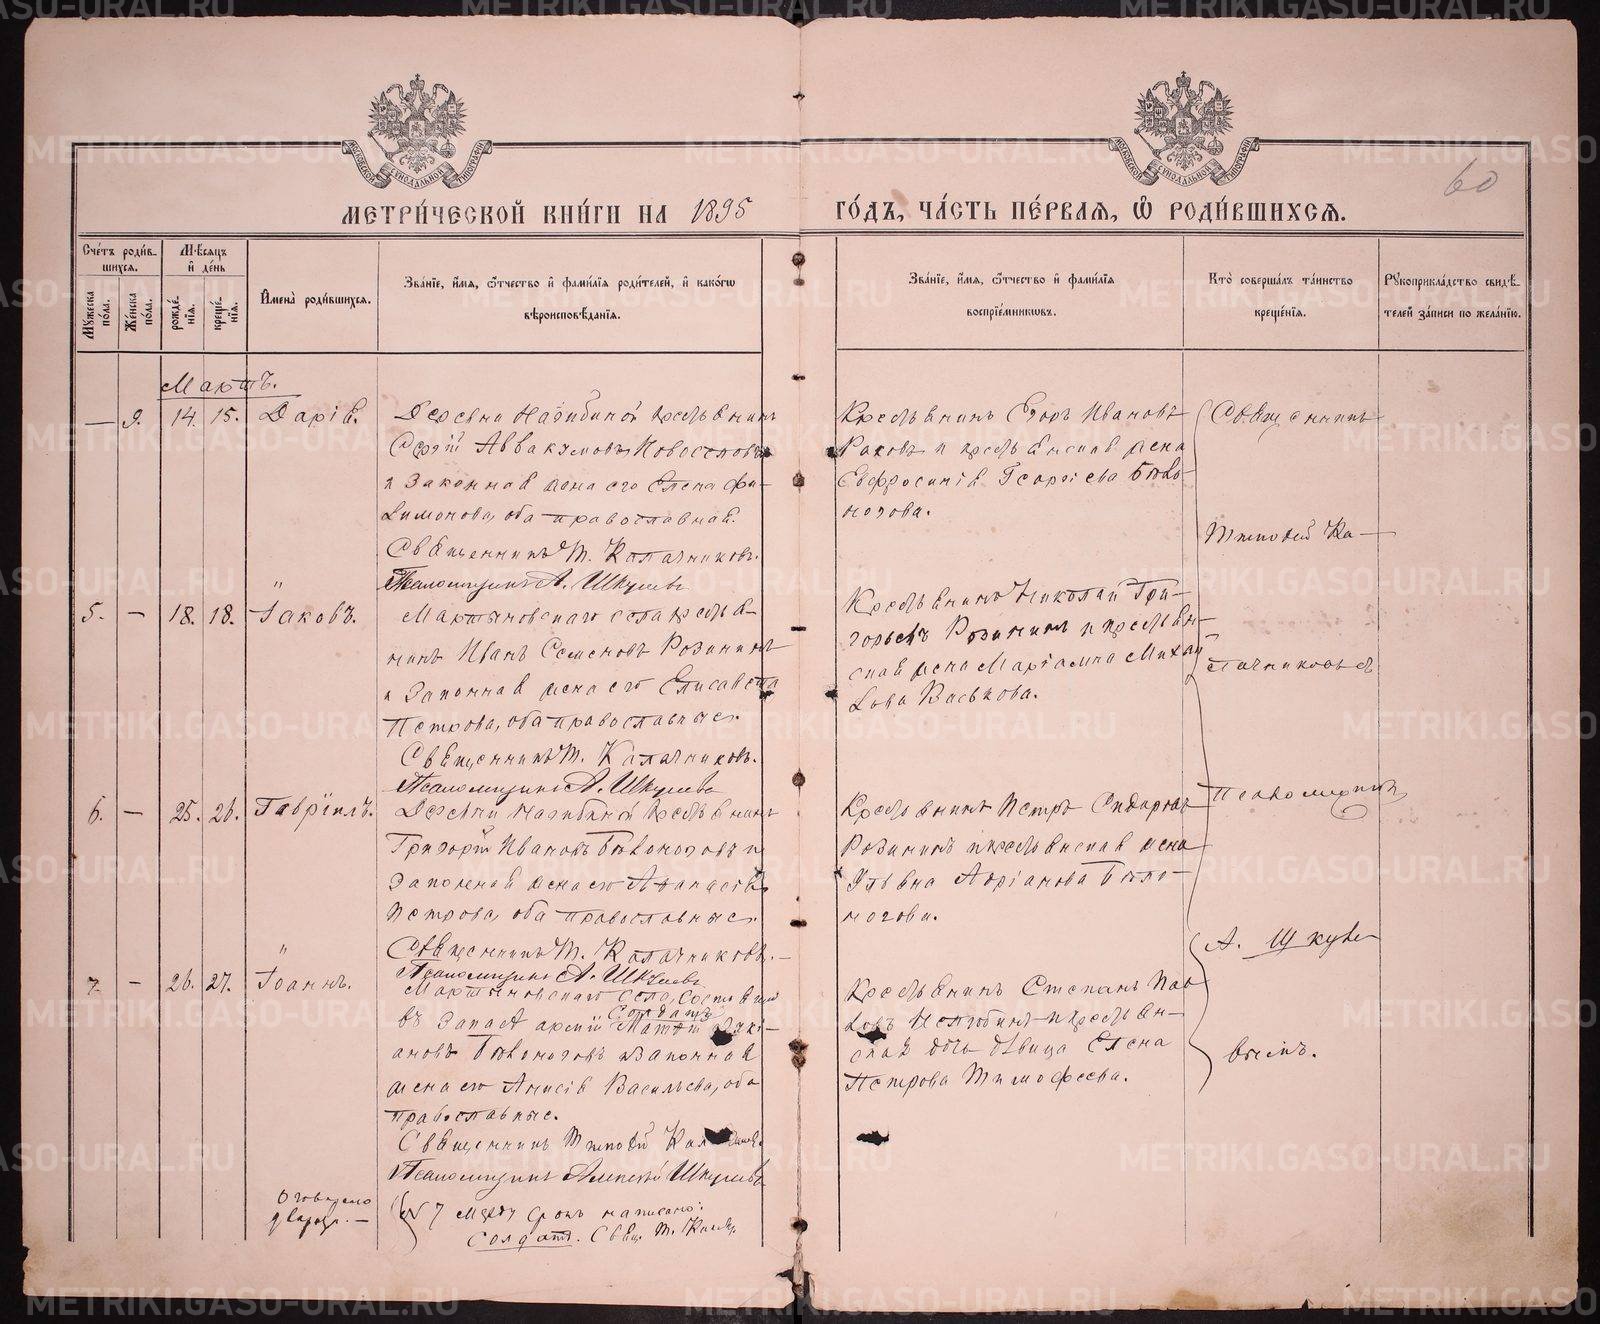 METRIKI.GASO-URAL.RU
60
МЕТРИ́ЧЕСКОЙ КНИ́ГИ НА 1895 ГО́ДЪ, ЧА́СТЬ ПЕ́РВАЯ, Ѽ РОДИ́ВШИХСЯ.
Сче́тъ роди́в-
шихся.
Мꙋ́жеска по́ла.
Же́нска по́ла.
Мѣ́сяцъ
и҆ де́нь
рожде́нїя.
креще́нїя.
И҆мена̀ роди́вшихся.
Зва́нїе, и҆́мя, ѻ҆́тчество и҆ фами́лїя роди́телей, и҆ како́гѡ
вѣроисповѣ́данїя.
Зва́нїе, и҆́мя, ѻ҆́тчество и҆ фами́лїя
воспрїе́мникѡвъ.
Кто̀ соверша́лъ та́инство
креще́нїя.
Рꙋкоприкла́дство свидѣ́-
телей за́писи по жела́нїю.
Мартъ.
— 9. 14. 15. Дарія.
Деревни Нагибиной крестьянинъ
Сергій Аввакумовъ Новоселовъ
и законная жена его Елена Фи-
лимонова, оба православная.
Священникъ Т. Калачниковъ.
Псаломщикъ А. Шкулевъ
Крестьянинъ Егоръ Ивановъ
Раковъ и крестьянская жена
Евфросинія Георгіева Бѣло-
ногова.
5. — 18. 18. Іаковъ.
Мартыновскаго села крестья-
нинъ Иванъ Семеновъ Розининъ
и законная жена его Елисавета
Петрова, оба православные.
Священникъ Т. Калачниковъ.
Псаломщикъ А. Шкулевъ
Крестьянинъ Николай Гри-
горьевъ Розининъ и крестьян-
ская жена Маріамна Михаи
лова Васькова.
6. — 25. 26. Гавріилъ.
Деревни Нагибиной крестьянинъ
Григорій Ивановъ Бѣлоноговъ и
законная жена его Афанасія
Петрова, оба православные.
Священникъ Т. Калачниковъ.
Псаломщикъ А. Шкулевъ
Крестьянинъ Петръ Сидоровъ
Розининъ и крестьянская жена
Ульяна Адріанова Бѣло-
ногова.
7. — 26. 27. Іоаннъ.
Мартыновскаго села, состоящій
Солдатъ
въ запасѣ арміи Матѳій
ановъ Бѣлоноговъ и законная
жена его Анисія Васильева, оба
православные.
Священникъ Тимоѳей
Псаломщикъ Алексѣй Шкулевъ
Крестьянинъ Степанъ Пав
ловъ и крестьян-
ская дочь дѣвица Елена
Петрова Тимофеева.
Священникъ
Тимоѳей Ка-
лачниковъ съ
Псаломщикомъ
А. Шкуле-
вымъ.
№ 7 между строкъ написано:
солдатъ. Свящ. Т. Калач.